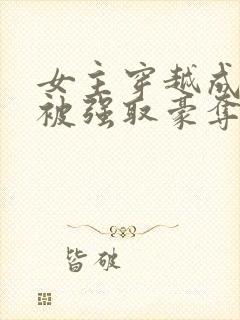 女主穿越成
被强取豪夺
皆破